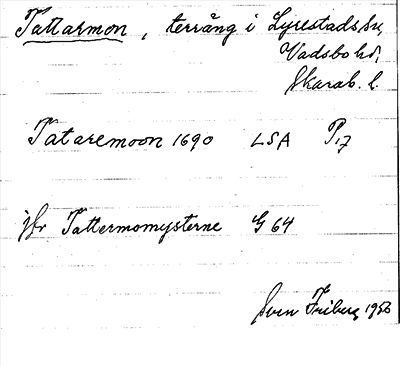 Tattarmon, terräng i Lyrestads sn,
Vadsbo hd,
Skarab. l.
Tataremoon 1690 LSA P17
jfr Tattermomysterne G 64
Sven Friberg 1950